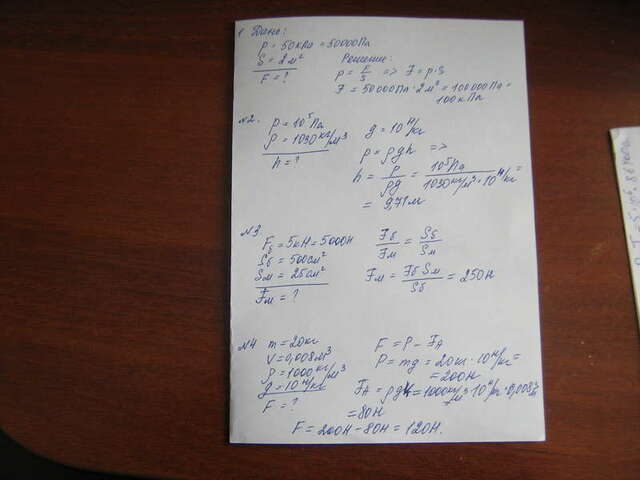 1 Дано:
p = 50кПа = 50000Па
S = 2м²
F = ?
Решение:
p = F/S => F = p·S
F = 50000Па · 2м² = 100000Па =
100кПа
№2.
p = 10⁵Па
ρ = 1030кг/м³
h = ?
g = 10 Н/кг
p = ρgh =>
h = p/ρg = 10⁵Па/1030кг/м³·10Н/кг =
= 9,71м
№3
Fб = 5кН = 5000Н
Sб = 500см²
Sм = 25см²
Fм = ?
Fб/Fм = Sб/Sм
Fм = Fб Sм/Sб = 250Н
№4
m = 20кг
V = 0,008м³
ρ = 1000кг/м³
g = 10Н/кг
F = ?
F = P - FА
P = mg = 20кг · 10Н/кг =
= 200Н
FА = ρgV = 1000кг/м³·10Н/кг·0,008м³
= 80Н
F = 200Н - 80Н = 120Н.